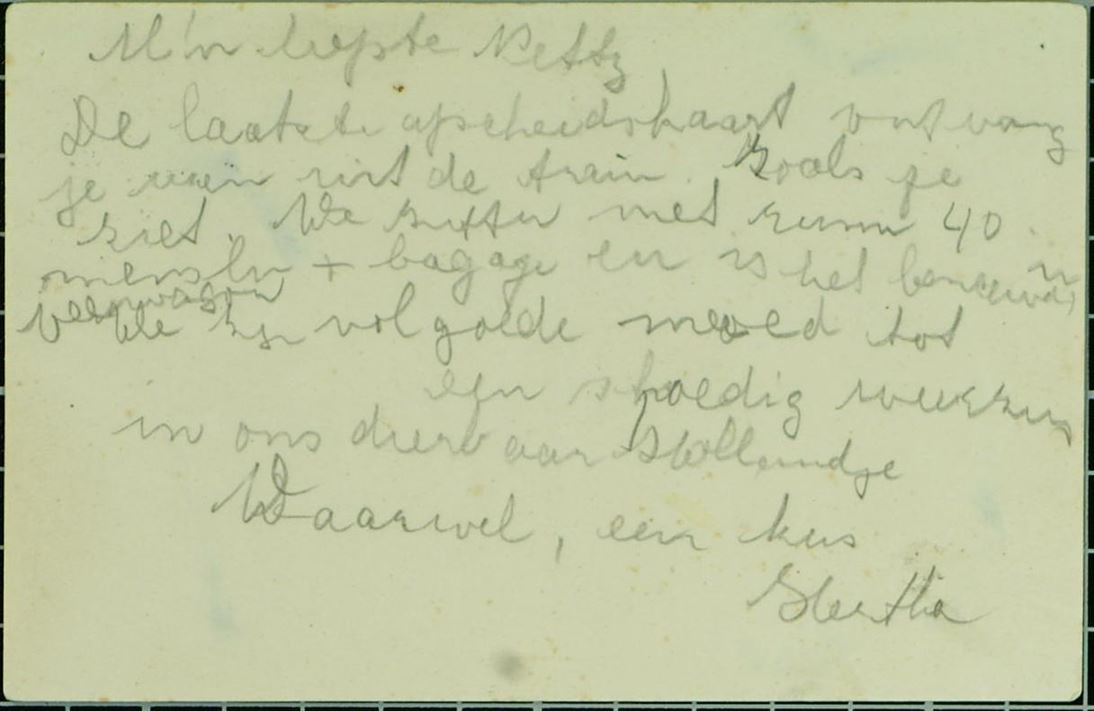 M'n liefste Netty
De laatste afscheidskaart ontvang
je uit de train. Zoals je
ziet. We zitten met ruim 40
menschen + bagage in 1 
veewagen
We zijn vol goede moed tot
een spoedig weerzien
in ons dierbaar Hollandje
Vaarwel, een kus
Hertha